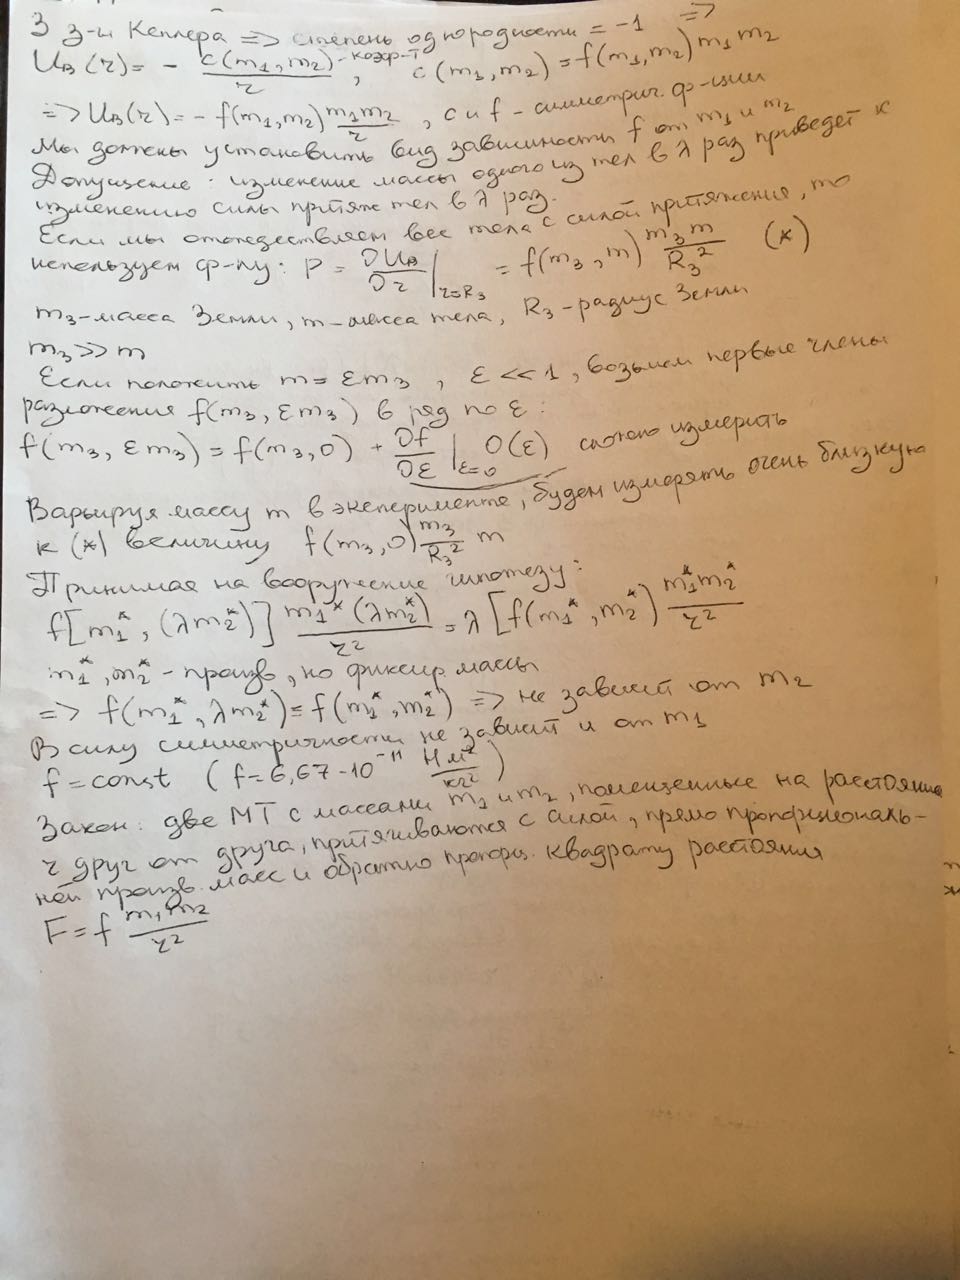 3 з-н Кеплера => степень однородности = -1 =>
U_в(r) = - c(m₁,m₂) - коэф-т / r , c(m₁,m₂) = f(m₁,m₂) m₁ m₂
=> U_в(r) = - f(m₁,m₂) m₁m₂ / r , c и f - симметрич. ф-ции
Мы должны установить вид зависимости f от m₁ и m₂
Допущение: изменение массы одного из тел в λ раз приведет к
изменению силы притяж тел в λ раз.
Если мы отождествляем вес тела с силой притяжения, то
используем ф-лу: P = ∂U_в/∂r |_{r=R₃} = f(m₃, m) m₃m / R₃² (*)
m₃ - масса Земли, m - масса тела, R₃ - радиус Земли
m₃ >> m
Если положить m = εm₃ , ε << 1, возьмем первые члены
разложения f(m₃, εm₃) в ряд по ε:
f(m₃, εm₃) = f(m₃, 0) + ∂f/∂ε |_{ε=0} O(ε) сложно измерить
Варьируя массу m в эксперименте, будем измерять очень близкую
к (*) величину f(m₃, 0) m₃/R₃² m
Принимая на вооружение гипотезу:
f[m₁*, (λm₂*)] m₁*(λm₂*) / r² = λ [f(m₁*, m₂*) m₁*m₂* / r²
m₁*, m₂* - произв, но фиксир. массы
=> f(m₁*, λm₂*) = f(m₁*, m₂*) => не зависит от m₂
В силу симметричности не зависит и от m₁
f = const ( f = 6,67 · 10⁻¹¹ Н м²/кг² )
Закон: две МТ с массами m₁ и m₂, помещенные на расстояние
r друг от друга, притягиваются с силой, прямо пропорциональ-
ной произв. масс и обратно пропорц. квадрату расстояния
F = f m₁m₂ / r²